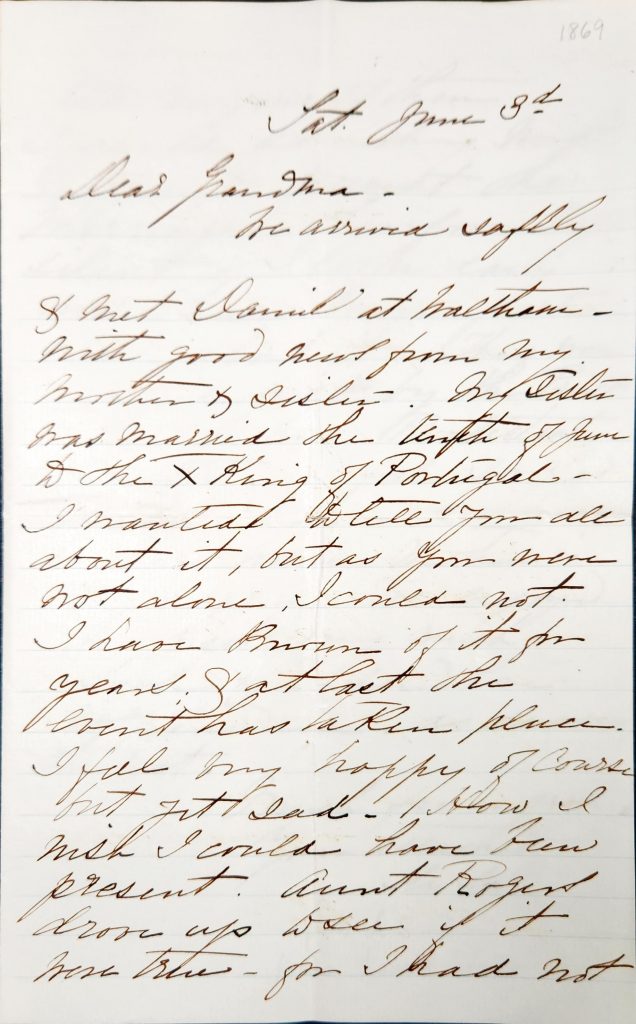 1869
Sat. June 3d
Dear Grandma -
We arrived safely
& met Daniel at Waltham -
with good news from my
Mother & Sister. My Sister
was married the tenth of June
to the X King of Portugal -
I wanted to tell you all
about it, but as you were
not alone, I could not.
I have known of it for
years, & at last the
event has taken place.
I feel very happy of course
but yet sad - How I
wish I could have been
present. Aunt Rogers
drove up to see if it
were true - for I had not